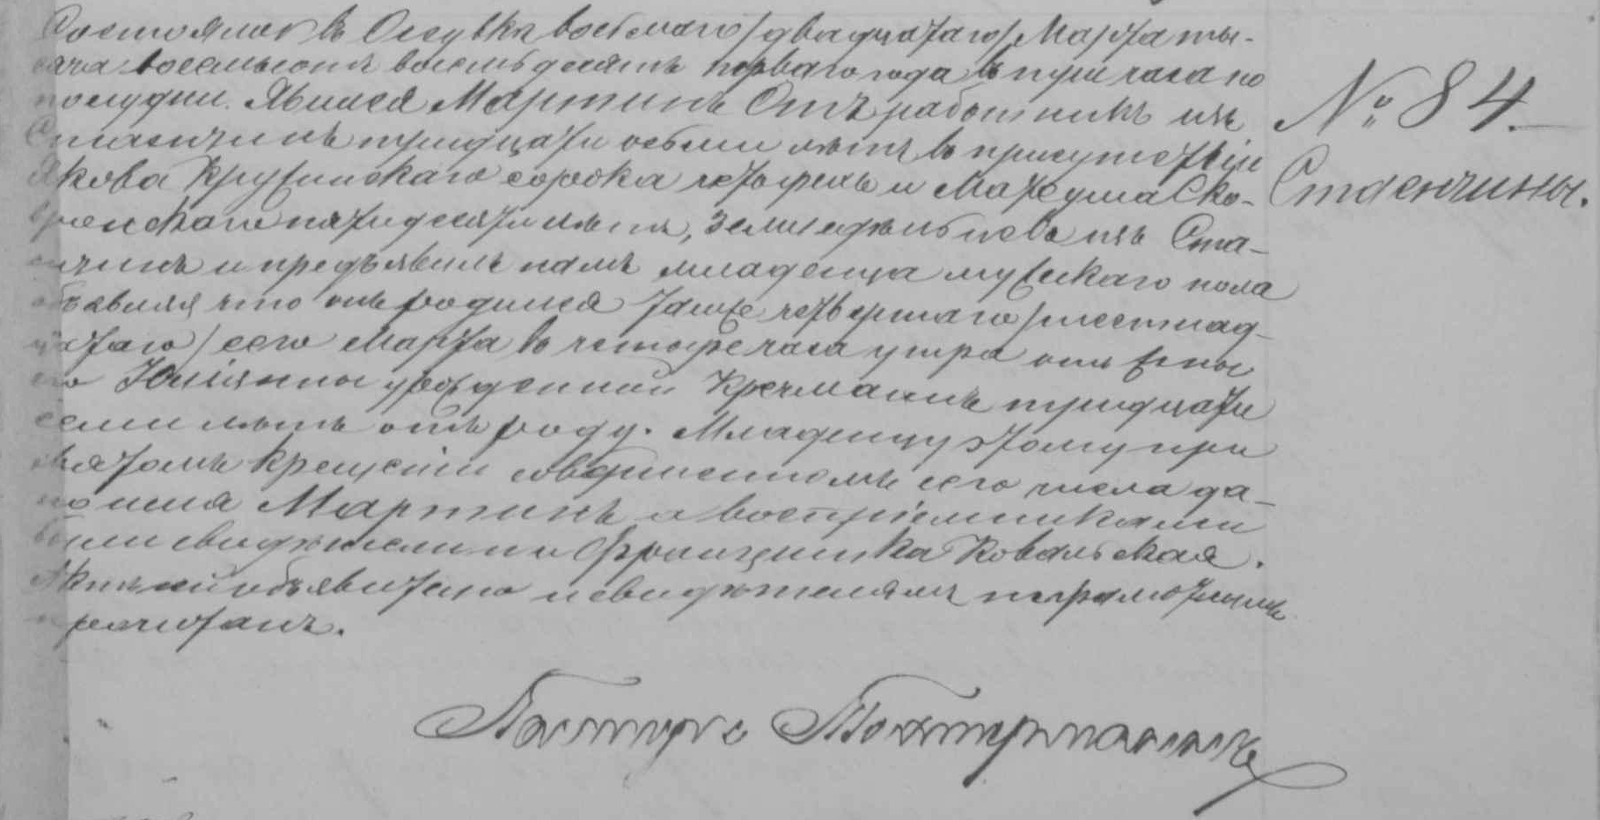 Состоялось въ Осувка восьмаго/двадцатаго/Марта ты-
сяча восемьсотъ восемьдесятъ перваго года въ три часа по
полудни. Явился Мартинъ Отъ работникъ изъ
Станчинъ тридцати осьми лѣтъ въ присутствіи
Якова Крушинскаго сорока четырехъ и Матеуша Ско-
вронскаго пятидесяти лѣтъ, земледѣльцевъ изъ Ста-
нчинъ и предъявилъ намъ младенца мужскаго пола
объявляя что онъ родился четвертаго/шестнад-
цатаго/сего Марта въ четыре часа утра отъ жены
его Юліянны урожденной Кречманнъ тридцати
семи лѣтъ отъ роду. Младенцу этому при
святомъ крещеніи совершенномъ сего числа да-
но имя Мартинъ а воспріемниками
были свидѣтели и Францишка Ковальская.
Актъ сей объявителю и свидѣтелямъ неграмотнымъ
прочитанъ.
Пасторъ
№ 84.
Станчины.